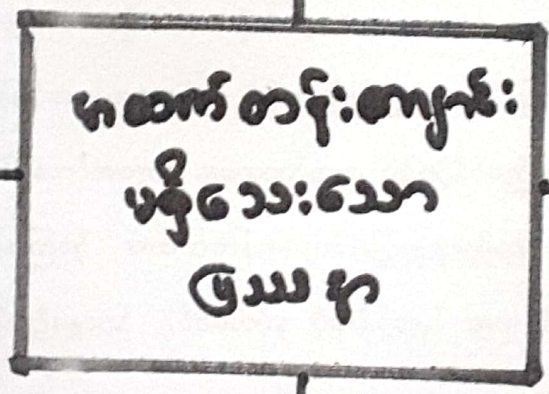 အထက်တန်းကျောင်း
မရှိသေးသော
ပြဿနာ